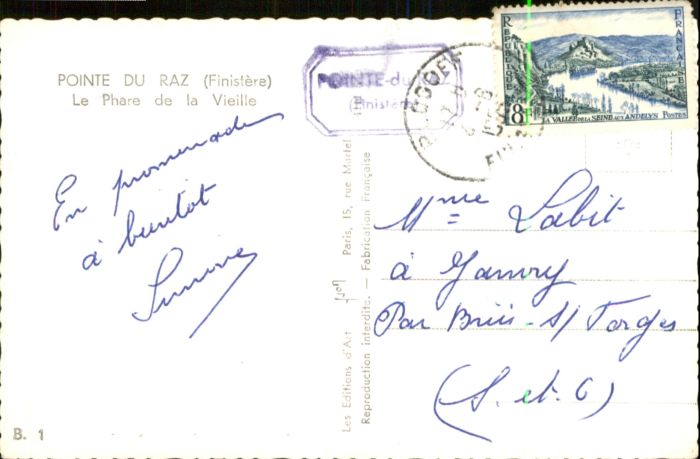 POINTE DU RAZ (Finistère)
Le Phare de la Vieille
En promenade
à bientôt
Simone
B. 1
POINTE-du-RAZ
(Finistère)
Les Editions d'Art Jack Paris, 15, rue Martel
Reproduction interdite. — Fabrication Française
RÉPUBLIQUE
FRANÇAISE
8F
LA VALLÉE DE LA SEINE AUX ANDELYS POSTES
Mme Labit
à
Par Briis-s/ Forges
(S.et.O)